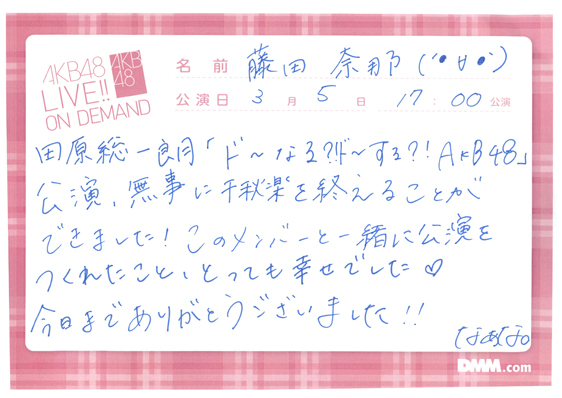 AKB48
LIVE!!
ON DEMAND
AKB
48
名前 藤田 奈那 (´•∀•`)
公演日 3月5日 17:00公演
田原総一朗「ド～なる?!ド～する?! AKB48」
公演、無事に千秋楽を終えることが
できました！このメンバーと一緒に公演を
つくれたこと、とっても幸せでした♡
今日までありがとうございました!!
なぁな。
DMM.com